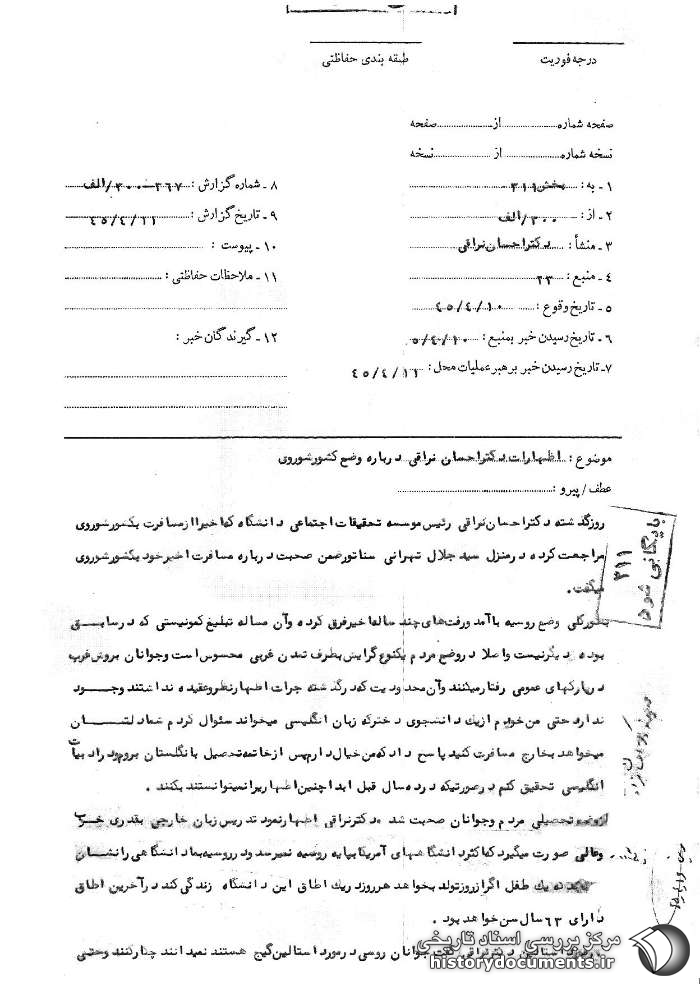 درجه فوریت
طبقه بندی حفاظتی
صفحه شماره از صفحه
نسخه شماره از نسخه
۱ـ به : بخش ۳۱۱
۲ـ از : ۳۰۰/الف
۳ـ منشأ : دکتر احسان نراقی
۴ـ منبع : ۲۳
۵ـ تاریخ وقوع : ۴۵/۴/۱۰
۶ـ تاریخ رسیدن خبر بمنبع : ۵/۴/۱۰
۷ـ تاریخ رسیدن خبر برهبر عملیات محل : ۴۵/۴/۱۱
۸ـ شماره گزارش : ۳۶۷-۳۰۰/الف
۹ـ تاریخ گزارش : ۴۵/۴/۱۱
۱۰ـ پیوست :
۱۱ـ ملاحظات حفاظتی :
۱۲ـ گیرندگان خبر :
موضوع : اظهارات دکتر احسان نراقی درباره وضع کشور شوروی
عطف / پیرو :
روز گذشته دکتر احسان نراقی رئیس موسسه تحقیقات اجتماعی دانشگاه که اخیرا از مسافرت بکشور شوروی
مراجعت کرده در منزل سید جلال تهرانی سناتور ضمن صحبت درباره مسافرت اخیر خود بکشور شوروی
میگفت .
بطورکلی وضع روسیه با آمد و رفت‌های چند ساله اخیر فرق کرده و آن مساله تبلیغ کمونیستی که در سابق
بوده دیگر نیست و اصلا در وضع مردم یکنوع گرایش بطرف تمدن غربی محسوس است و جوانان بروش غرب
در پارکهای عمومی رفتار میکنند و آن محدودیت که در گذشته جرات اظهار نظر و عقیده نداشتند وجود
ندارد حتی من خودم از یک دانشجوی دختر که زبان انگلیسی میخواند سئوال کردم شما دلتان
میخواهد بخارج مسافرت کنید پاسخ داد که من خیال دارم پس از خاتمه تحصیل بانگلستان بروم و در ادبیات
انگلیسی تحقیق کنم در صورتیکه در ده سال قبل ابدا چنین اظهاری را نمیتوانستند بکنند .
از وضع تحصیلی مردم و جوانان صحبت شد دکتر نراقی اظهار نمود تدریس زبان خارجی بقدری خوب
و عالی صورت میگیرد که اکثر دانشگاههای آمریکا بپایه روسیه نمیرسد و در روسیه بما دانشگاهی را نشان
دادند که یک طفل اگر از روز تولد بخواهد هر روز در یک اطاق این دانشگاه زندگی کند در آخرین اطاق
دارای ۶۳ سال سن خواهد بود .
دکتر نراقی گفت جوانان روسی در مورد استالین گیج هستند نمیدانند چکار کنند و حتی
بایگانی شود
۳۱۱
مرکز بررسی اسناد تاریخی
historydocuments.ir